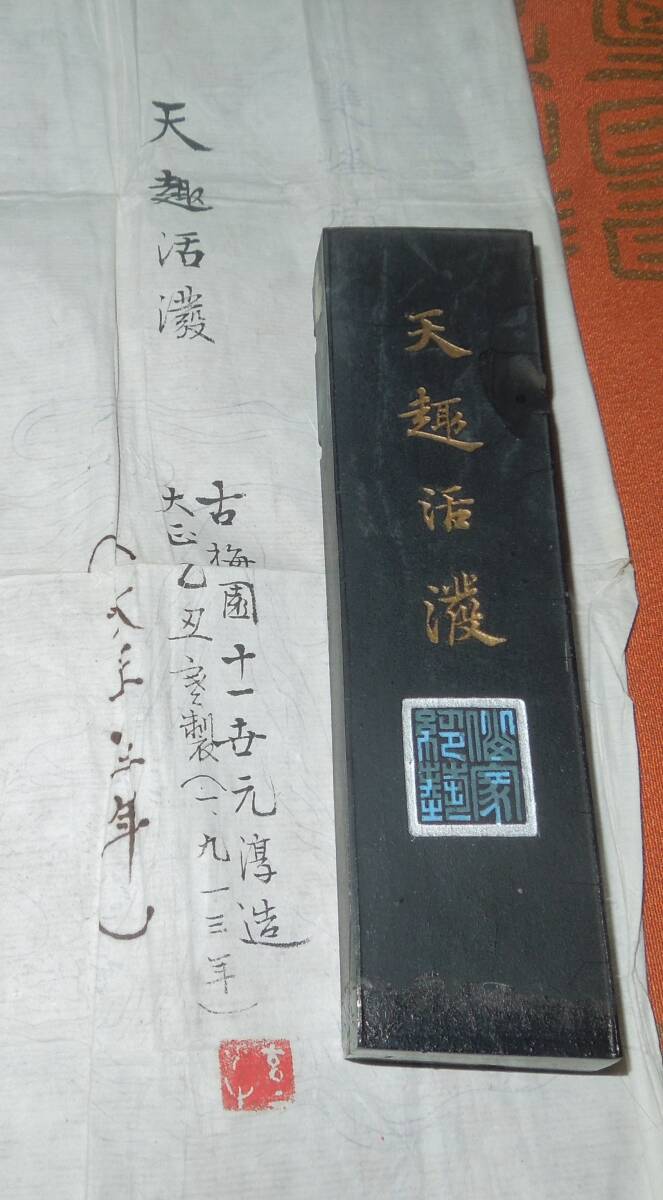 天趣活潑
古梅園十一世元淳造
大正乙丑寒製(一九一三年)
天趣活潑